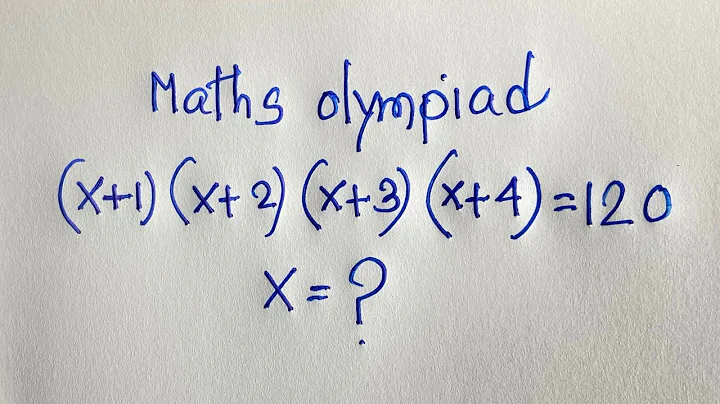 Maths olympiad
(x+1) (x+2) (x+3) (x+4) =120
x = ?